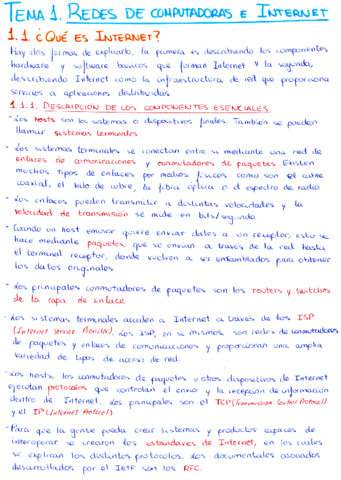 TEMA 1. REDES DE COMPUTADORAS E INTERNET
1.1. ¿QUÉ ES INTERNET?
Hay dos formas de explicarlo, la primera es describiendo los componentes
hardware y software básicos que forman Internet y la segunda,
describiendo Internet como la infraestructura de red que proporciona
servicios a aplicaciones distribuidas.
1.1.1. DESCRIPCIÓN DE LOS COMPONENTES ESENCIALES
- Los hosts son los sistemas o dispositivos finales. También se pueden
llamar sistemas terminales.
- Los sistemas terminales se conectan entre sí mediante una red de
enlaces de comunicaciones y conmutadores de paquetes. Existen
muchos tipos de enlaces por medios físicos como son el cable
coaxial, el hilo de cobre, la fibra óptica o el espectro de radio.
- Los enlaces pueden transmitir a distintas velocidades y la
velocidad de transmisión se mide en bits/segundo.
- Cuando un host emisor quiere enviar datos a un receptor, esto se
hace mediante paquetes, que se envían a través de la red hasta
el terminal receptor, donde vuelven a ser ensamblados para obtener
los datos originales.
- Los principales conmutadores de paquetes son los routers y switches
de la capa de enlace.
- Los sistemas terminales acceden a Internet a través de los ISP
(Internet Service Provider). Los ISP, en sí mismos, son redes de conmutadores
de paquetes y enlaces de comunicaciones y proporcionan una amplia
variedad de tipos de acceso de red.
- Los hosts, los conmutadores de paquetes u otros dispositivos de Internet
ejecutan protocolos que controlan el envío y la recepción de información
dentro de Internet. Los principales son el TCP (Transmission Control Protocol)
y el IP (Internet Protocol)
- Para que la gente pueda crear sistemas y productos capaces de
interoperar se crearon los estándares de Internet, en los cuales
se explican los distintos protocolos. Los documentales asociados
desarrollados por el IETF son los RFC.